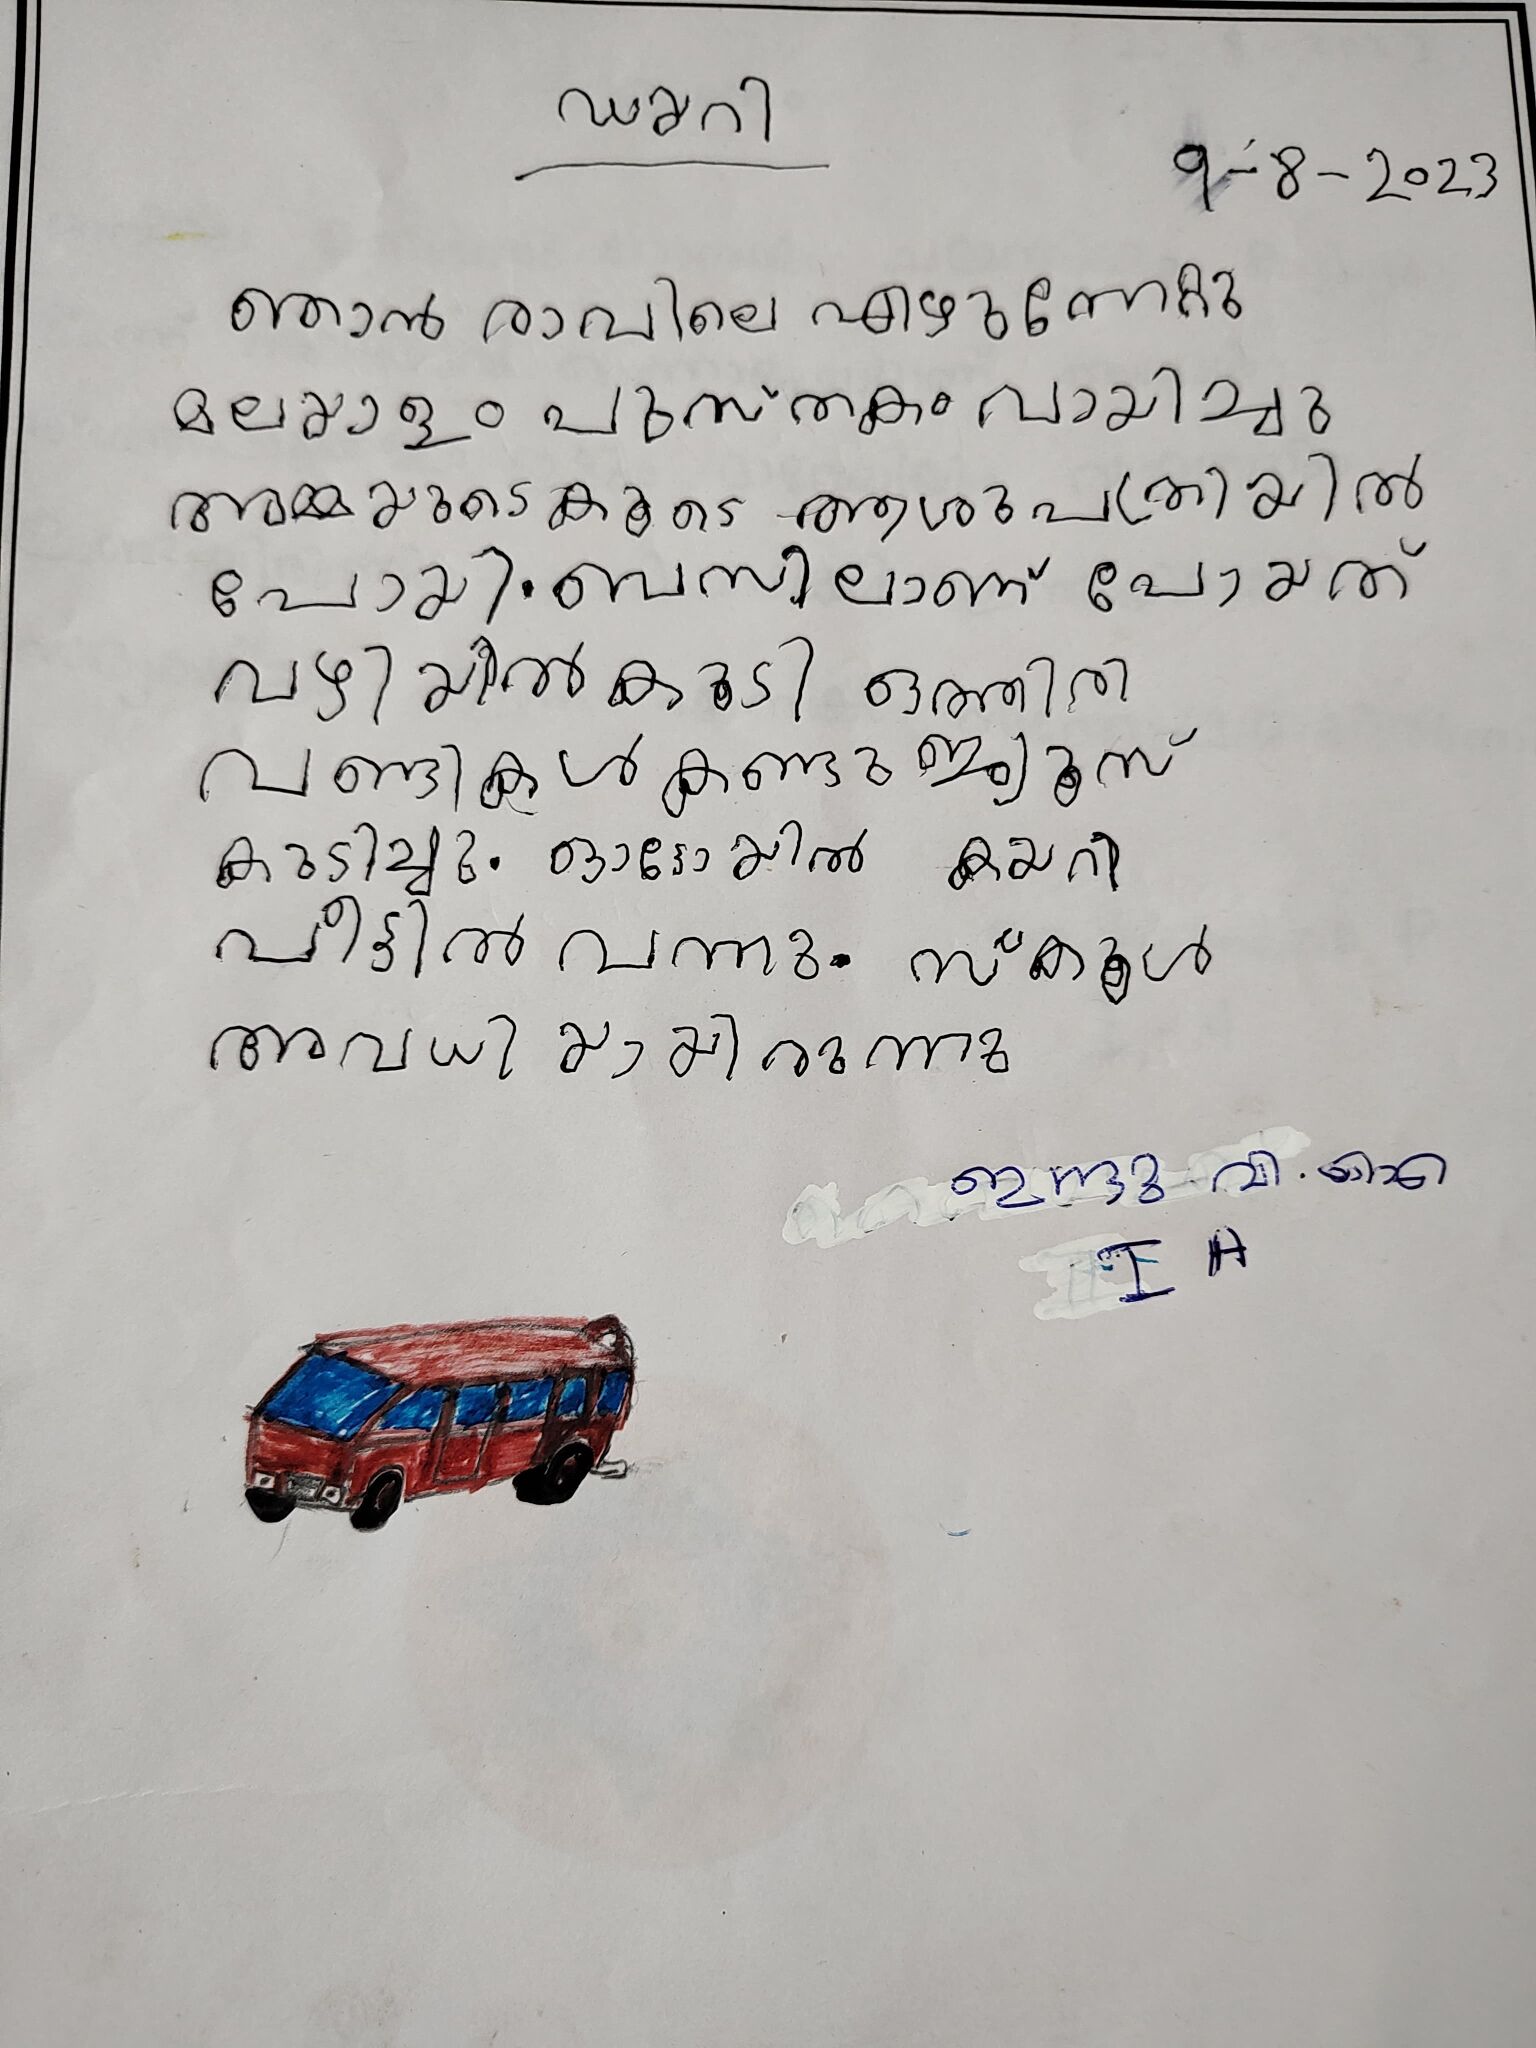 ഡയറി
9-8-2023
ഞാൻ രാവിലെ എഴുന്നേറ്റു
മലയാളം പുസ്തകം വായിച്ചു
അമ്മയുടെ കൂടെ ആശുപത്രിയിൽ
പോയി. ബസിലാണ് പോയത്
വഴിയിൽ കൂടി ഒത്തിരി
വണ്ടികൾ കണ്ടു ജ്യൂസ്
കുടിച്ചു. ഓട്ടോയിൽ കയറി
വീട്ടിൽ വന്നു. സ്കൂൾ
അവധിയായിരുന്നു
ഇന്ദു വി.
I A